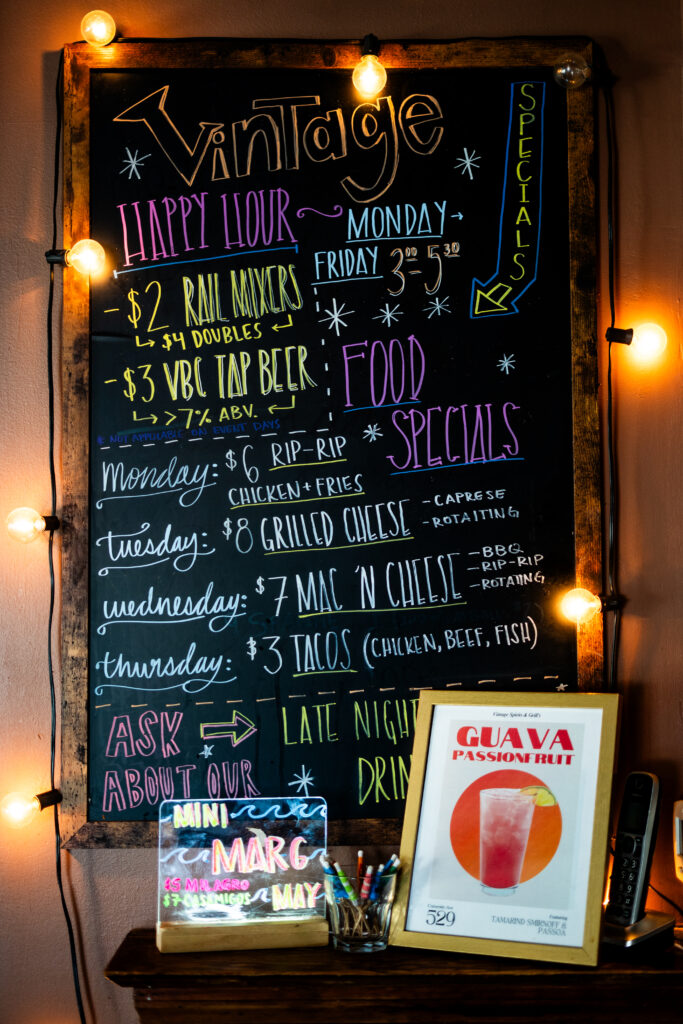 Vintage
SPECIALS
HAPPY HOUR ~ MONDAY →
FRIDAY 3:00-5:30
- $2 RAIL MIXERS
$4 DOUBLES
- $3 VBC TAP BEER
>7% ABV.
* NOT APPLICABLE ON EVENT DAYS
FOOD
SPECIALS
Monday: $6 RIP-RIP
CHICKEN + FRIES
tuesday: $8 GRILLED CHEESE - CAPRESE
- ROTAITING
wednesday: $7 MAC 'N CHEESE - BBQ
- RIP-RIP
- ROTATING
thursday: $3 TACOS (CHICKEN, BEEF, FISH)
ASK → LATE NIGHT
ABOUT OUR DRIN
MINI
MARG
$5 MILAGRO
$7 CASAMIGOS MAY
Vintage Spirits & Grill's
GUAVA
PASSIONFRUIT
529
Featuring
TAMARIND SMIRNOFF &
PASSOA